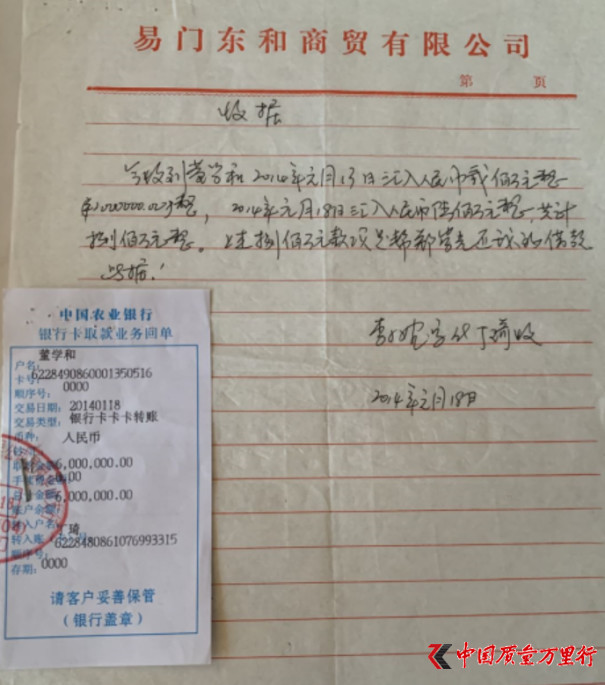 易门东和商贸有限公司
第 页
收据
今收到董学和2014年元月13日汇入人民币贰佰万元整
¥2000000.00整，2014年元月18日汇入人民币陆佰万元整，共计
捌佰万元整。上述捌佰万元款项是
还我的借款
此据！
代丁琦收
2014年元月18日
中国农业银行
银行卡取款业务回单
户名：董学和
卡号：6228490860001350516
顺序号：0000
交易日期：20140118
交易类型：银行卡卡卡转账
币种：人民币
6,000,000.00
0.00
6,000,000.00
账户余额
转入户名：丁琦
转入账 6228480861076993315
顺序号：
存期：0000
请客户妥善保管
（银行盖章）
中国质量万里行